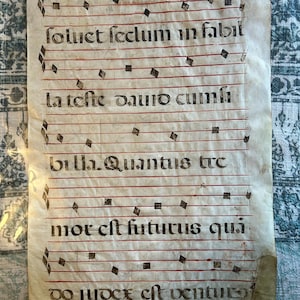 soluet seclum in fabil
la teste dauid cumsi
billa. Quantus tre
mor est futurus quā
do iudex est uentur